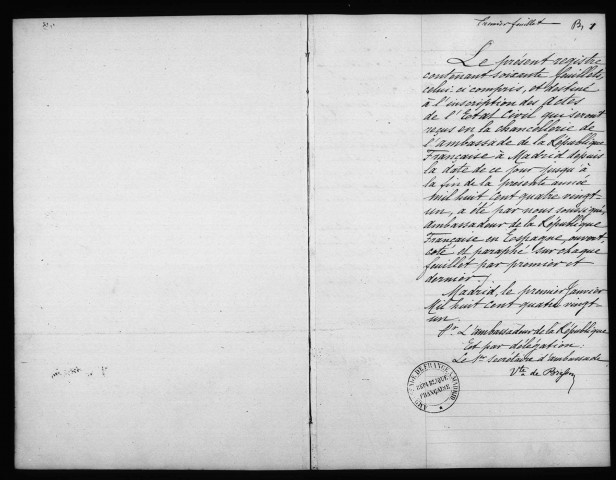 Premier feuillet
Le présent registre
contenant soixante feuillets,
celui-ci compris, est destiné
à l'inscription des Actes
de l'Etat Civil qui seront
reçus en la chancellerie de
l'ambassade de la République
Française à Madrid depuis
la date de ce jour jusqu'à
la fin de la présente année
mil huit cent quatre vingt
un, a été par nous soussigné,
ambassadeur de la République
Française en Espagne, ouvert,
coté et paraphé sur chaque
feuillet par premier et
dernier.
Madrid, le premier Janvier
Mil huit cent quatre vingt
un.
Pr. L'ambassadeur de la République
Et par délégation:
Le 1er secrétaire d'ambassade
Vte de
AMBASSADE DE FRANCE A MADRID
RÉPUBLIQUE
FRANÇAISE